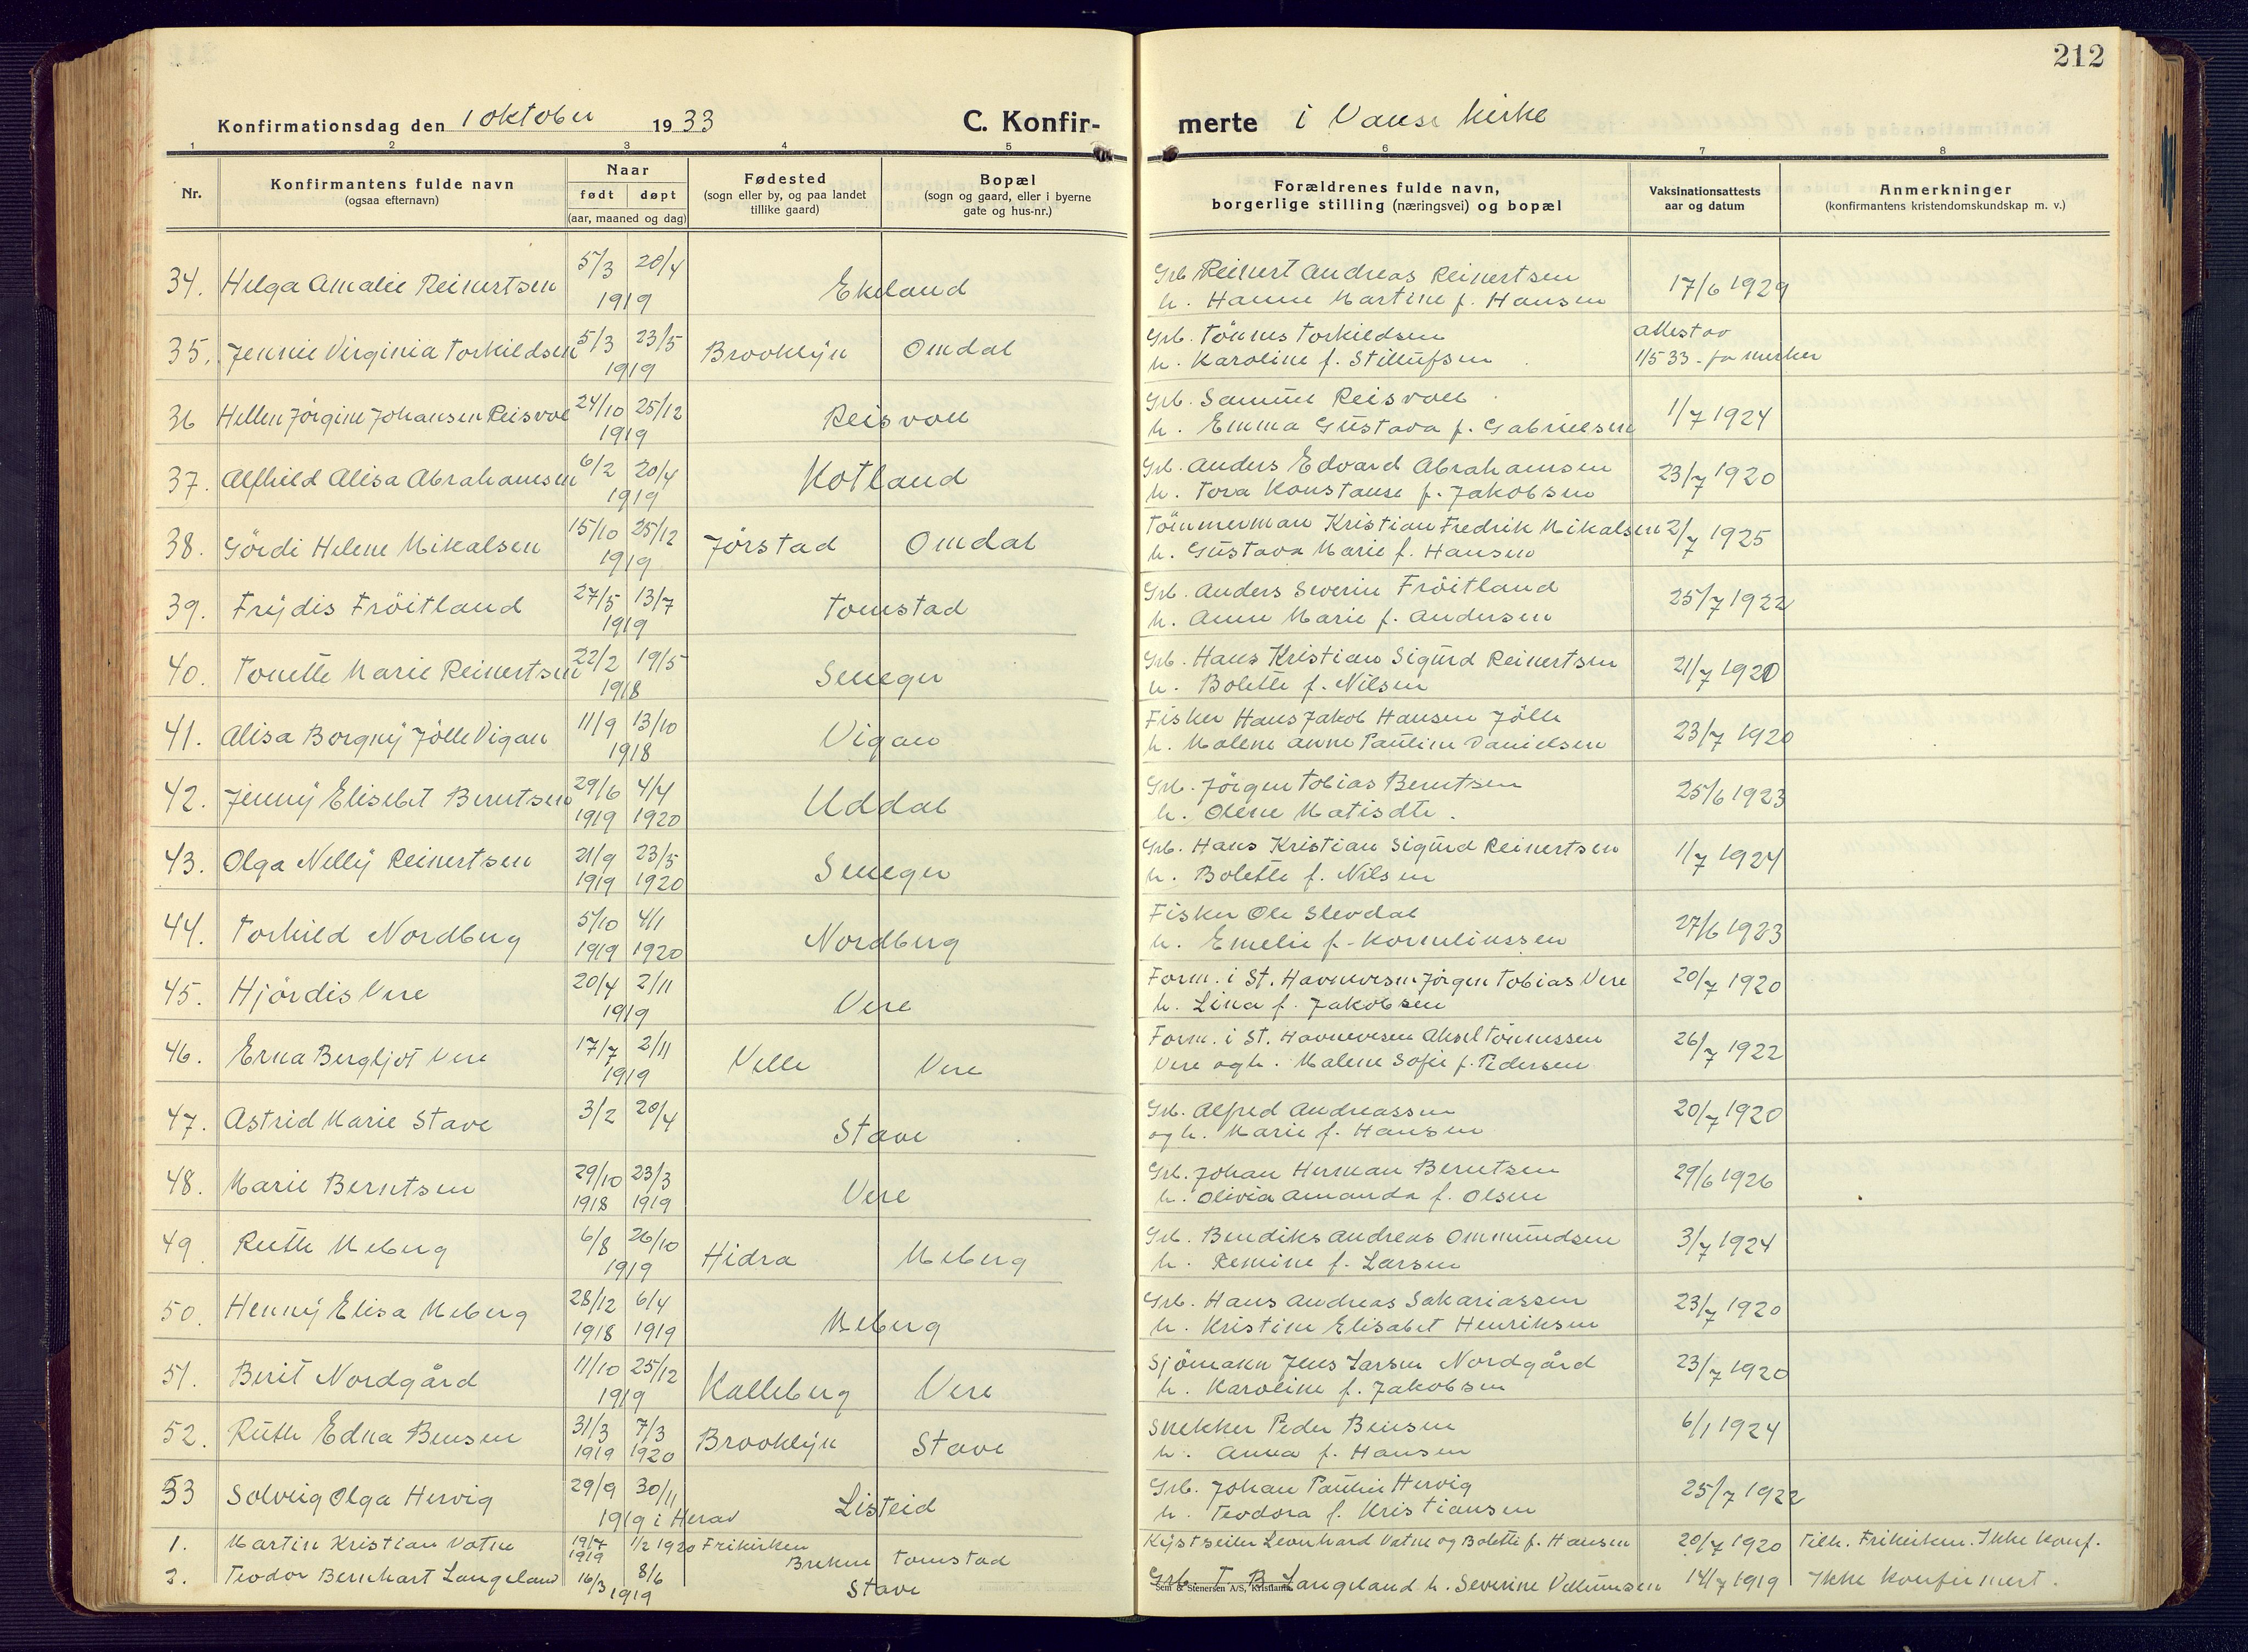 212
Konfirmationsdag den 1 oktober 1933 C. Konfir-
merte i Vanse kirke
1 2 3 4 5 6 7 8
Nr. Konfirmantens fulde navn (ogsaa efternavn)
Naar født døpt (aar, maaned og dag)
Fødested (sogn eller by, og paa landet tillike gaard)
Bopæl (sogn og gaard, eller i byerne gate og hus-nr.)
Forældrenes fulde navn, borgerlige stilling (næringsvei) og bopæl
Vaksinationsattests aar og datum
Anmerkninger (konfirmantens kristendomskundskap m. v.)
34. Helga Amalie Reinertsen 5/3 20/4 1919 Ekeland Grb. Reinert Andreas Reinertsen
h. Hanne Martine f. Hansen 17/6 1929
35. Jennie Virginia Torkildsen 5/3 23/5 1919 Brooklÿn Omdal Grb. Tönnes Torkildsen
h. Karoline f. Stillufsen 1/5 33
36 Hellen Jörgine Johansen Reisvoll 24/10 25/12 1919 Reisvoll Grb. Samuel Reisvoll
h. Emma Gustava f. Gabrielsen 1/7 1924
37. Alfhild Alisa Abrahamsen 6/2 20/4 1919 Kotland Grb. Anders Edvard Abrahamsen
h. Tora Konstanse f. Jakobsen 23/7 1920
38. Gördi Helene Mikalsen 15/10 25/12 1919 Jörstad Omdal Tömmerman Kristian Fredrik Mikalsen
h. Gustava Marie f. Hansen 2/7 1925
39. Frÿdis Fröitland 27/5 13/7 1919 Tomstad Grb. Anders Severin Fröitland
h. Anne Marie f. Andersen 25/7 1922
40. Tonette Marie Reinertsen 22/2 19/5 1918 Seneger Grb. Hans Kristian Sigurd Reinertsen
h. Bolette f. Nilsen 21/7 1920
41. Alisa Borgnÿ Jölle Vigan 11/9 13/10 1918 Vigan Fisker Hans Jakob Hansen Jölle
h. Malene Anne Pauline Danielsen 23/7 1920
42. Jennÿ Elisebet Berntsen 29/6 1919 4/4 1920 Uddal Grb. Jörgen Tobias Berntsen
h. Olene Matisdtr. 25/6 1923
43. Olga Nellÿ Reinertsen 21/9 1919 23/5 1920 Seneger Grb. Hans Kristian Sigurd Reinertsen
h. Bolette f. Nilsen 1/7 1924
44. Torhild Nordberg 5/10 1919 4/1 1920 Nordberg Fisker Ole Slevdal
h. Emelie f. Korneliussen 27/6 1923
45. Hjördis Vere 20/4 2/11 1919 Vere Form. i St. Havnevesn Jörgen Tobias Vere
h. Lina f. Jakobsen 20/7 1920
46. Erna Bergljot Vere 17/7 2/11 1919 Velle Vere Form. i St. Havnevesen Aksel Tönnessen
Vere og h. Malene Sofie f. Pedersen 26/7 1922
47. Astrid Marie Stave 3/2 20/4 Stave Grb. Alfred Andreassen
og h. Marie f. Hansen 20/7 1920
48. Marie Berntsen 29/10 1918 23/3 1919 Vere Grb. Johan Herman Berntsen
h. Olivia Amanda f. Olsen 29/6 1926
49 Ruth Meberg 6/8 26/10 1919 Hidra Meberg Grb. Bendiks Andreas Ommundsen
h. Remine f. Larsen 3/7 1924
50. Hennÿ Elisa Meberg 28/12 1918 6/4 1919 Meberg Grb. Hans Andreas Sakariassen
h. Kristine Elisabet Henriksen 23/7 1920
51. Berit Nordgård 11/10 25/12 1919 Kalleberg Vere Sjömann Jens Larsen Nordgård
h. Karoline f. Jakobsen 23/7 1920
52. Ruth Edna Bensen 31/3 1919 7/3 1920 Brooklÿn Stave Snekker Peder Bensen
h. Anna f. Hansen 6/1 1924
53 Solveig Olga Hervig 29/9 30/11 1919 i Herad Listeid Grb. Johan Paulin Hervig
h. Teodora f. Kristiansen 25/7 1922
1. Martin Kristian Vatne 19/7 1919 1/2 1920 Frikirken Brekne Tomstad Kÿstseiler Leonhard Vatne og Bolette f. Hansen 20/7 1920 Tilh. Frikirken. Ikke konf.
2. Teodor Bernhart Langeland 16/3 8/6 1919 Stave Grb. T. B. Langeland h. Severine 14/7 1919 Ikke konfirmert.